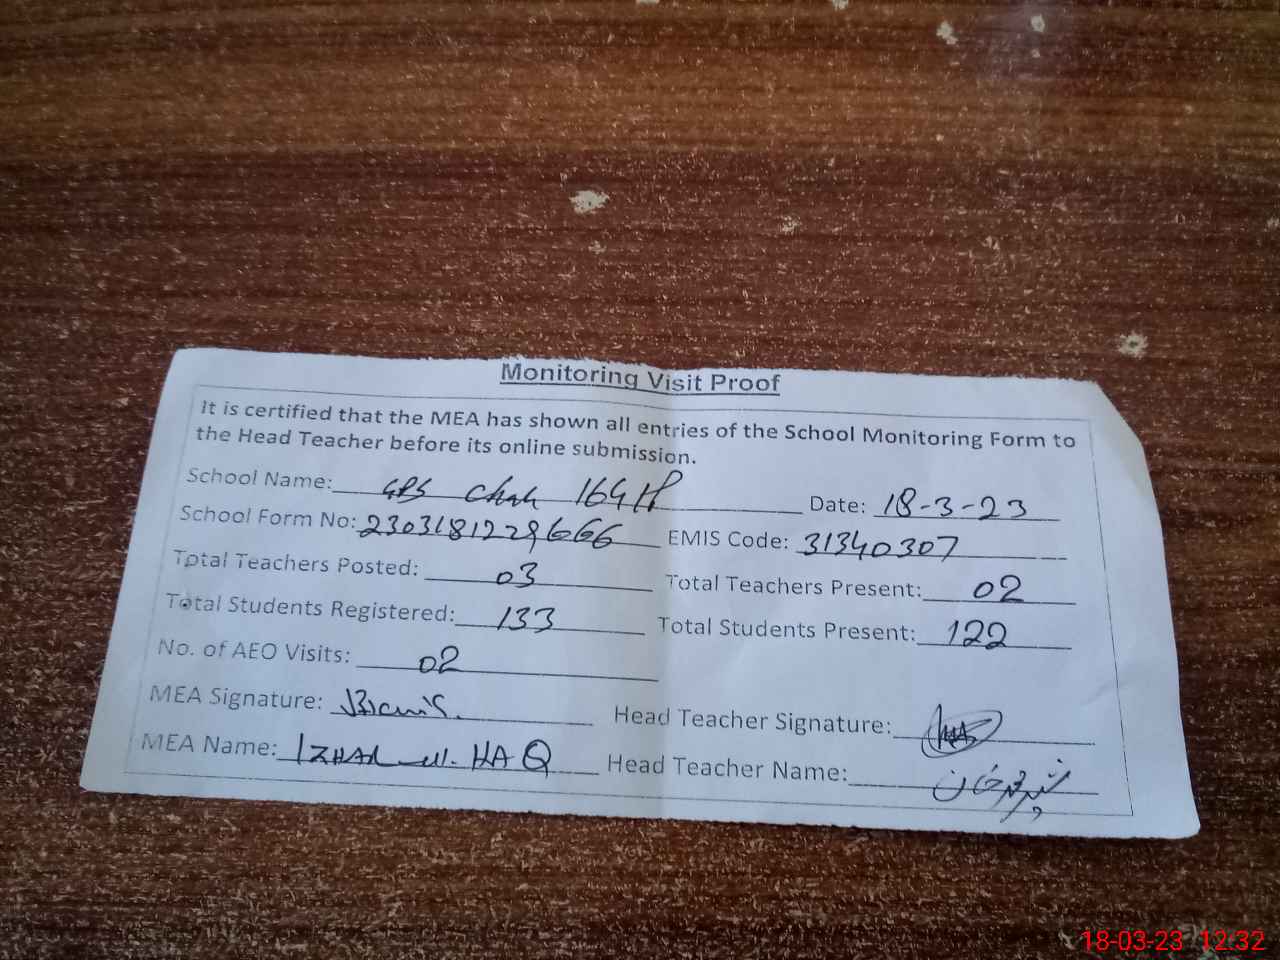 Monitoring Visit Proof
It is certified that the MEA has shown all entries of the School Monitoring Form to
the Head Teacher before its online submission.
School Name: GPS Chak 164 Date: 18-3-23
School Form No: EMIS Code: 31340307
Total Teachers Posted: 03 Total Teachers Present: 02
Total Students Registered: 133 Total Students Present: 122
No. of AEO Visits: 02
MEA Signature: Head Teacher Signature:
MEA Name: IZHAR ul. HAQ Head Teacher Name:
18-03-23 12:32